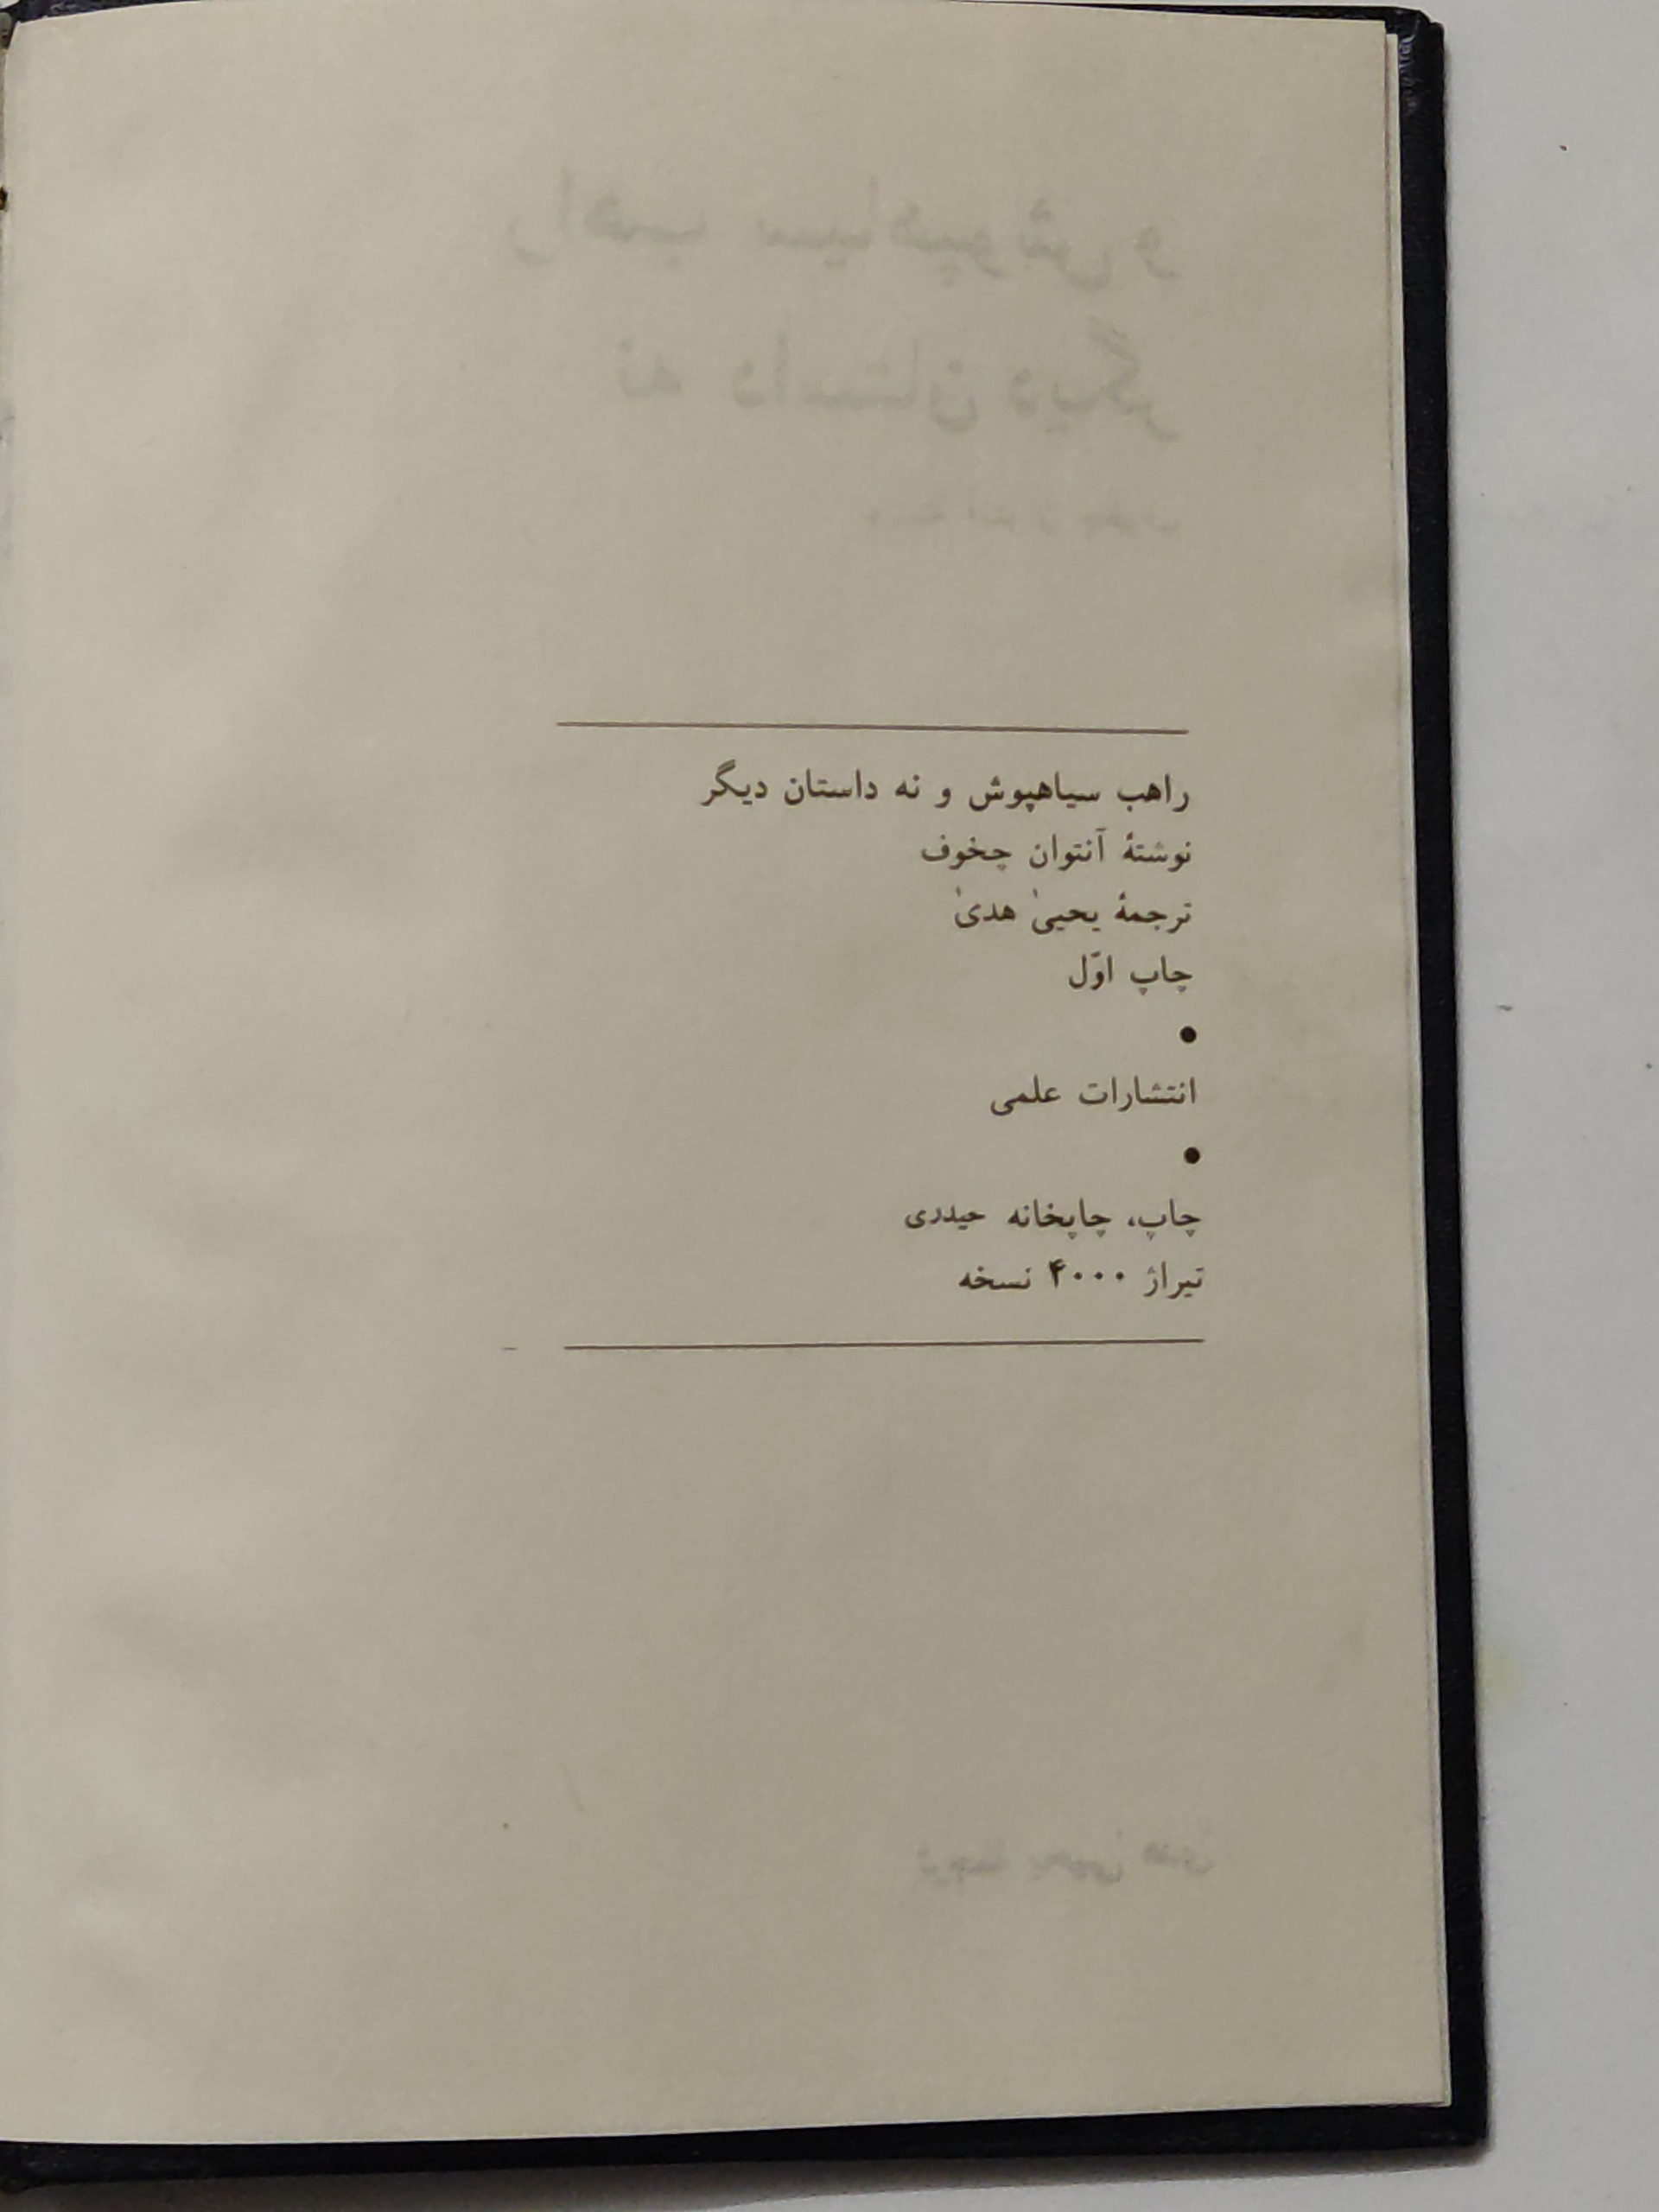 راهب سیاهپوش و نه داستان دیگر
نوشتهٔ آنتوان چخوف
ترجمهٔ یحییٰ هدیٰ
چاپ اوّل
•
انتشارات علمی
•
چاپ، چاپخانه حیدری
تیراژ ۴۰۰۰ نسخه